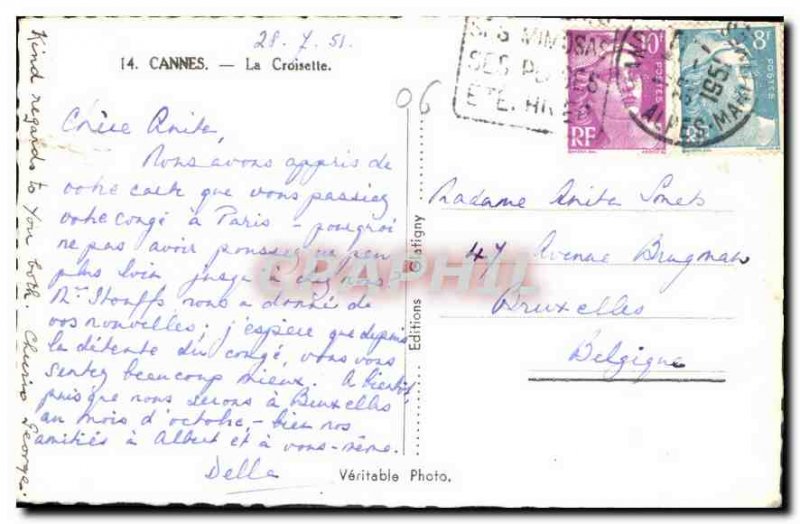 28.7.51.
14. CANNES. — La Croisette.
06
SES MIMOSAS
SES
ETE. HIVER
10F
RF
8F
POSTES
1951
ALPES MARIT
Chère Anita,
Nous avons appris de
votre carte que vous passiez
votre congé à Paris - pourquoi
ne pas avoir poussé un peu
plus loin jusqu'à chez nous?
Mr. Stouffs nous a donné de
vos nouvelles; j'espère que depuis
la détente du congé, vous vous
sentez beaucoup mieux. A bientôt
puisque nous serons à Bruxelles
au mois d'octobre, - bien nos
amitiés à Albert et à vous-même.
Della
Kind regards to You both. Cheerio George.
Editions Glatigny
Véritable Photo.
Madame Anita Smets
47 Avenue Brugmann
Bruxelles
Belgique
CPAPHIL